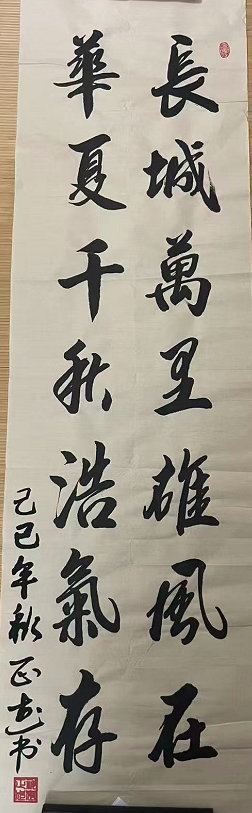 長城萬里雄風在
華夏千秋浩氣存
己巳年秋正志书